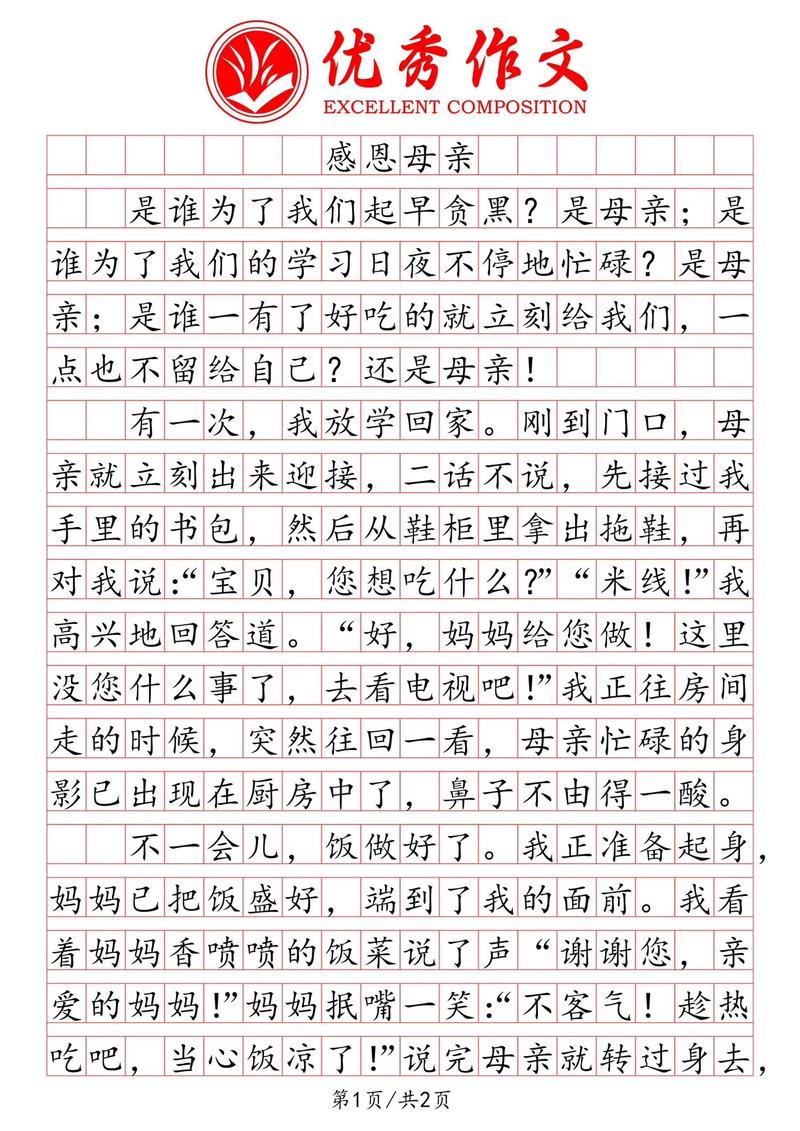 优秀作文
EXCELLENT COMPOSITION
感恩母亲
是谁为了我们起早贪黑？是母亲；是
谁为了我们的学习日夜不停地忙碌？是母
亲；是谁一有了好吃的就立刻给我们，一
点也不留给自己？还是母亲！
有一次，我放学回家。刚到门口，母
亲就立刻出来迎接，二话不说，先接过我
手里的书包，然后从鞋柜里拿出拖鞋，再
对我说：“宝贝，您想吃什么？”“米线！”我
高兴地回答道。“好，妈妈给您做！这里
没您什么事了，去看电视吧！”我正往房间
走的时候，突然往回一看，母亲忙碌的身
影已出现在厨房中了，鼻子不由得一酸。
不一会儿，饭做好了。我正准备起身，
妈妈已把饭盛好，端到了我的面前。我看
着妈妈香喷喷的饭菜说了声“谢谢您，亲
爱的妈妈！”妈妈抿嘴一笑：“不客气！趁热
吃吧，当心饭凉了！”说完母亲就转过身去，
第1页/共2页